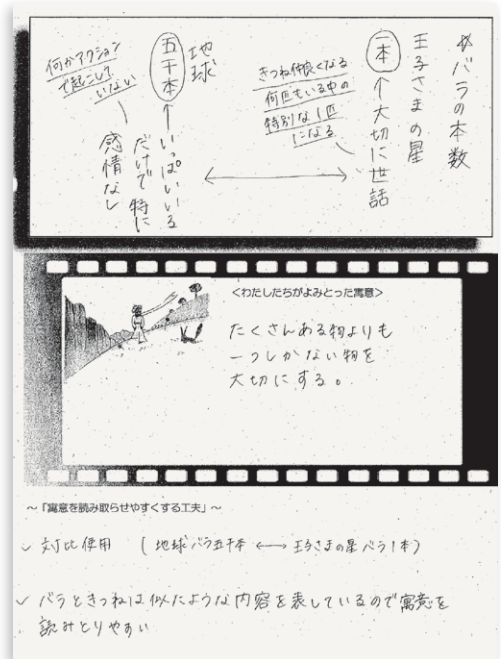 ☆バラの本数
王子さまの星
一本 ← 大切に世話
きつね仲良くなる
何匹もいる中の
特別な1匹
になる
地球
五千本 ← いっぱいいる
だけで特に
感情なし
何かアクション
で起こして
いない
<わたしたちがよみとった寓意>
たくさんある物よりも
一つしかない物を
大切にする。
~「寓意を読み取らせやすくする工夫」~
✓ 対比使用 ( 地球バラ五千本 ←→ 王子さまの星バラ1本)
✓ バラときつねは似たような内容を表しているので寓意を
読みとりやすい